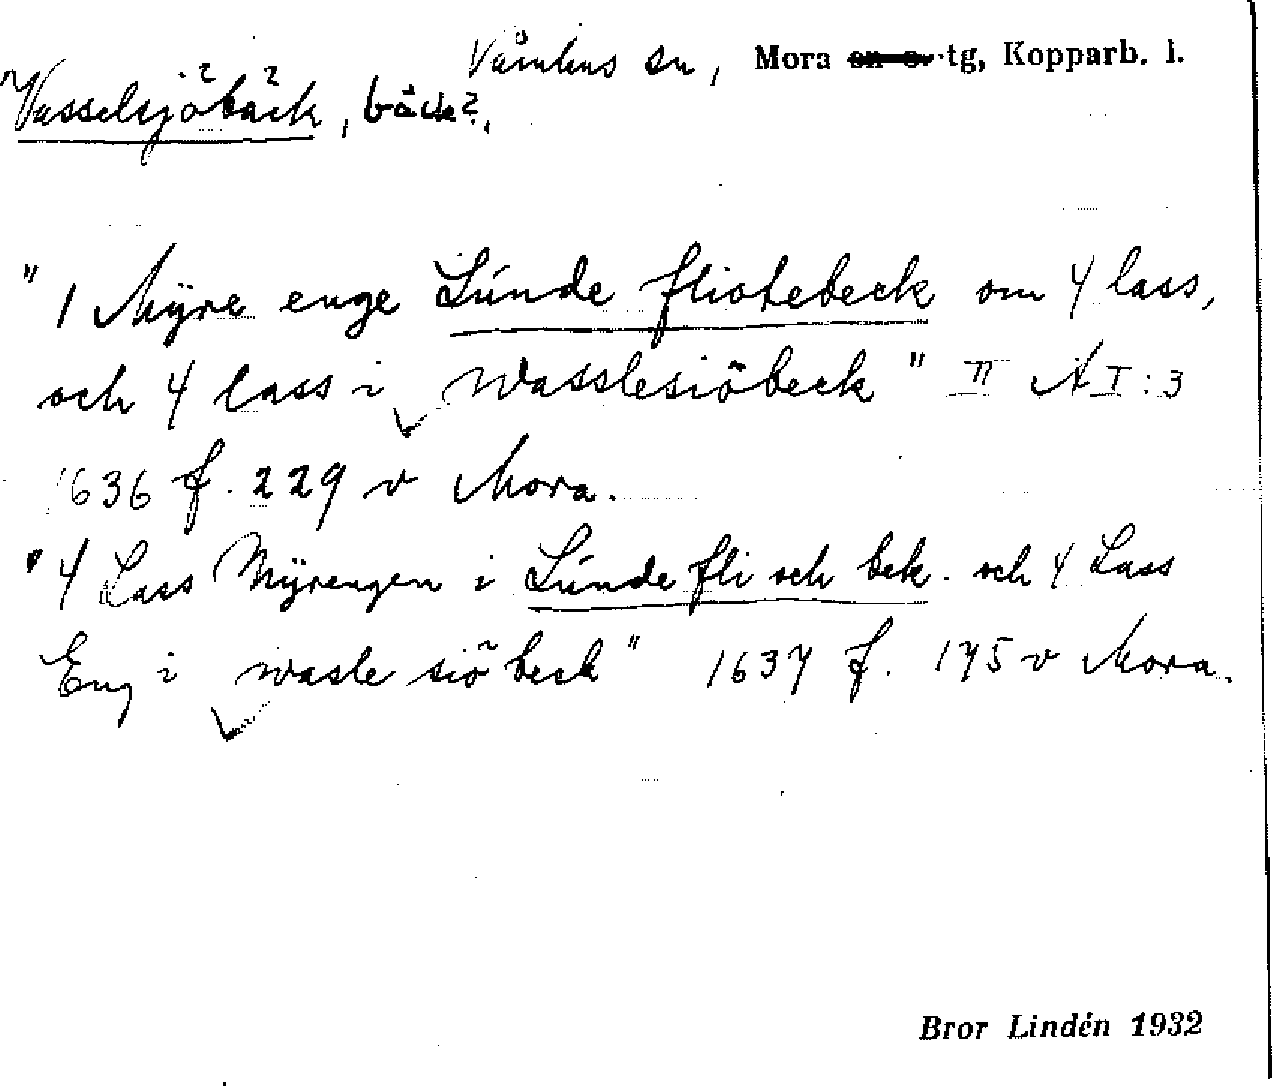 Våmhus sn, Mora sn o. tg, Kopparb. l.
"Vasselsjöbäck, bäck?,
" 1 Mÿre enge Lúnde fliotebeck om 4 lass,
och 4 lass i Wasslesiöbeck" II A I:3
1636 f. 229 v Mora.
"4 Lass Mÿrengen i Lúnde fli och bek. och 4 Lass
Eng i wasle siö beck" 1637 f. 175 v Mora.
Bror Lindén 1932